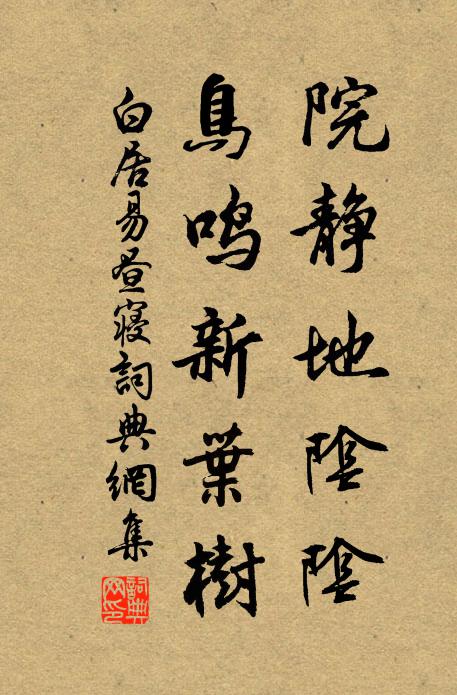 院静地陰陰
鳥鳴新葉樹
白居易晝寢詞典網集
詞典网印